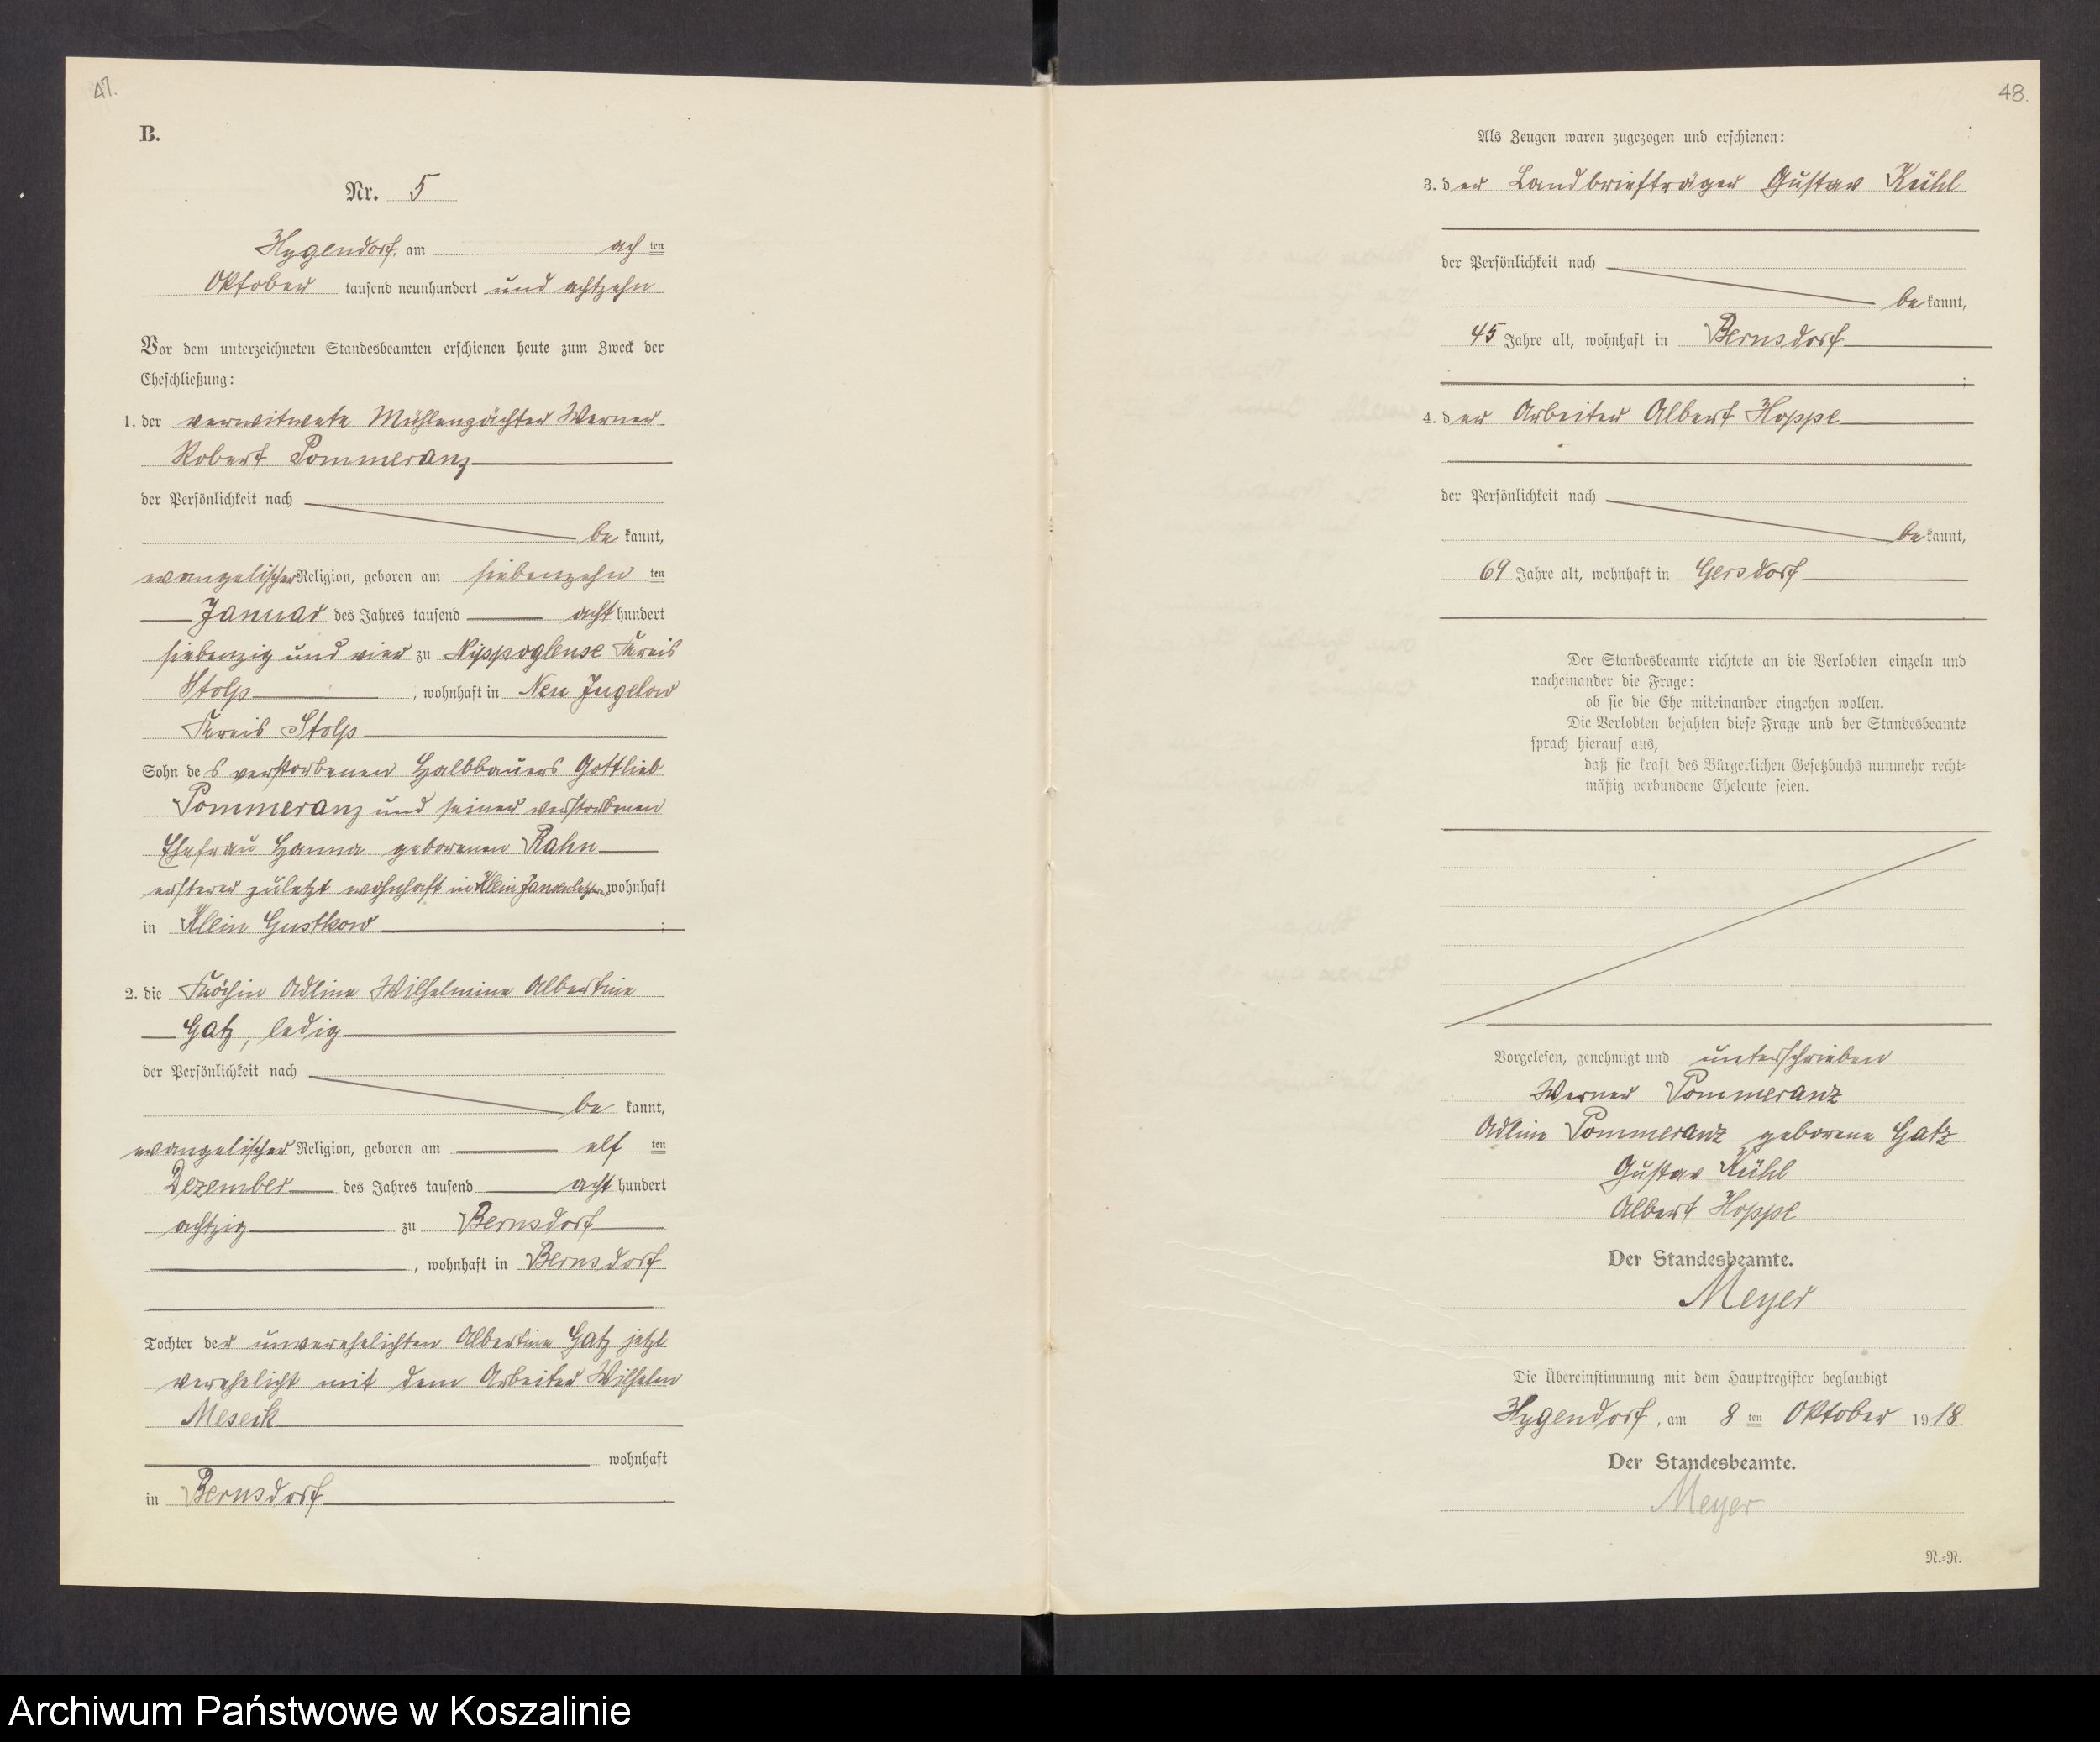 47.
B.
Nr. 5
Hygendorf, am ach ten
Oktober tausend neunhundert und achtzehn
Vor dem unterzeichneten Standesbeamten erschienen heute zum Zweck der
Eheschließung:
1. der verwitwete Mühlenpächter Werner
Robert Pommeranz
der Persönlichkeit nach
be kannt,
evangelischer Religion, geboren am siebenzehn ten
Januar des Jahres tausend acht hundert
siebenzig und vier zu Nippoglense Kreis
Stolp, wohnhaft in Neu Jugelow
Kreis Stolp
Sohn des verstorbenen Halbbauers Gottlieb
Pommeranz und seiner verstorbenen
Ehefrau Hanna geborenen Rahn
ersterer zuletzt wohnhaft in Klein wohnhaft
in Klein Gustkow ;
2. die Köchin Adline Wilhelmine Albertine
Gatz, ledig
der Persönlichkeit nach
be kannt,
evangelischer Religion, geboren am elf ten
Dezember des Jahres tausend acht hundert
achtzig zu Bernsdorf
, wohnhaft in Bernsdorf
Tochter der unverehelichten Albertine Gatz jetzt
verehelicht mit dem Arbeiter Wilhelm
Meseck
wohnhaft
in Bernsdorf
48.
Als Zeugen waren zugezogen und erschienen:
3. der Landbriefträger Gustav Kühl
der Persönlichkeit nach
be kannt,
45 Jahre alt, wohnhaft in Bernsdorf
;
4. der Arbeiter Albert Hoppe
der Persönlichkeit nach
be kannt,
69 Jahre alt, wohnhaft in Gersdorf
Der Standesbeamte richtete an die Verlobten einzeln und
nacheinander die Frage:
ob sie die Ehe miteinander eingehen wollen.
Die Verlobten bejahten diese Frage und der Standesbeamte
sprach hierauf aus,
daß sie kraft des Bürgerlichen Gesetzbuchs nunmehr recht-
mäßig verbundene Eheleute seien.
Vorgelesen, genehmigt und unterschrieben
Werner Pommeranz
Adline Pommeranz geborene Gatz
Gustav Kühl
Albert Hoppe
Der Standesbeamte.
Meyer
Die Übereinstimmung mit dem Hauptregister beglaubigt
Hygendorf, am 8 ten Oktober 1918.
Der Standesbeamte.
Meyer
N.-N.
Archiwum Państwowe w Koszalinie